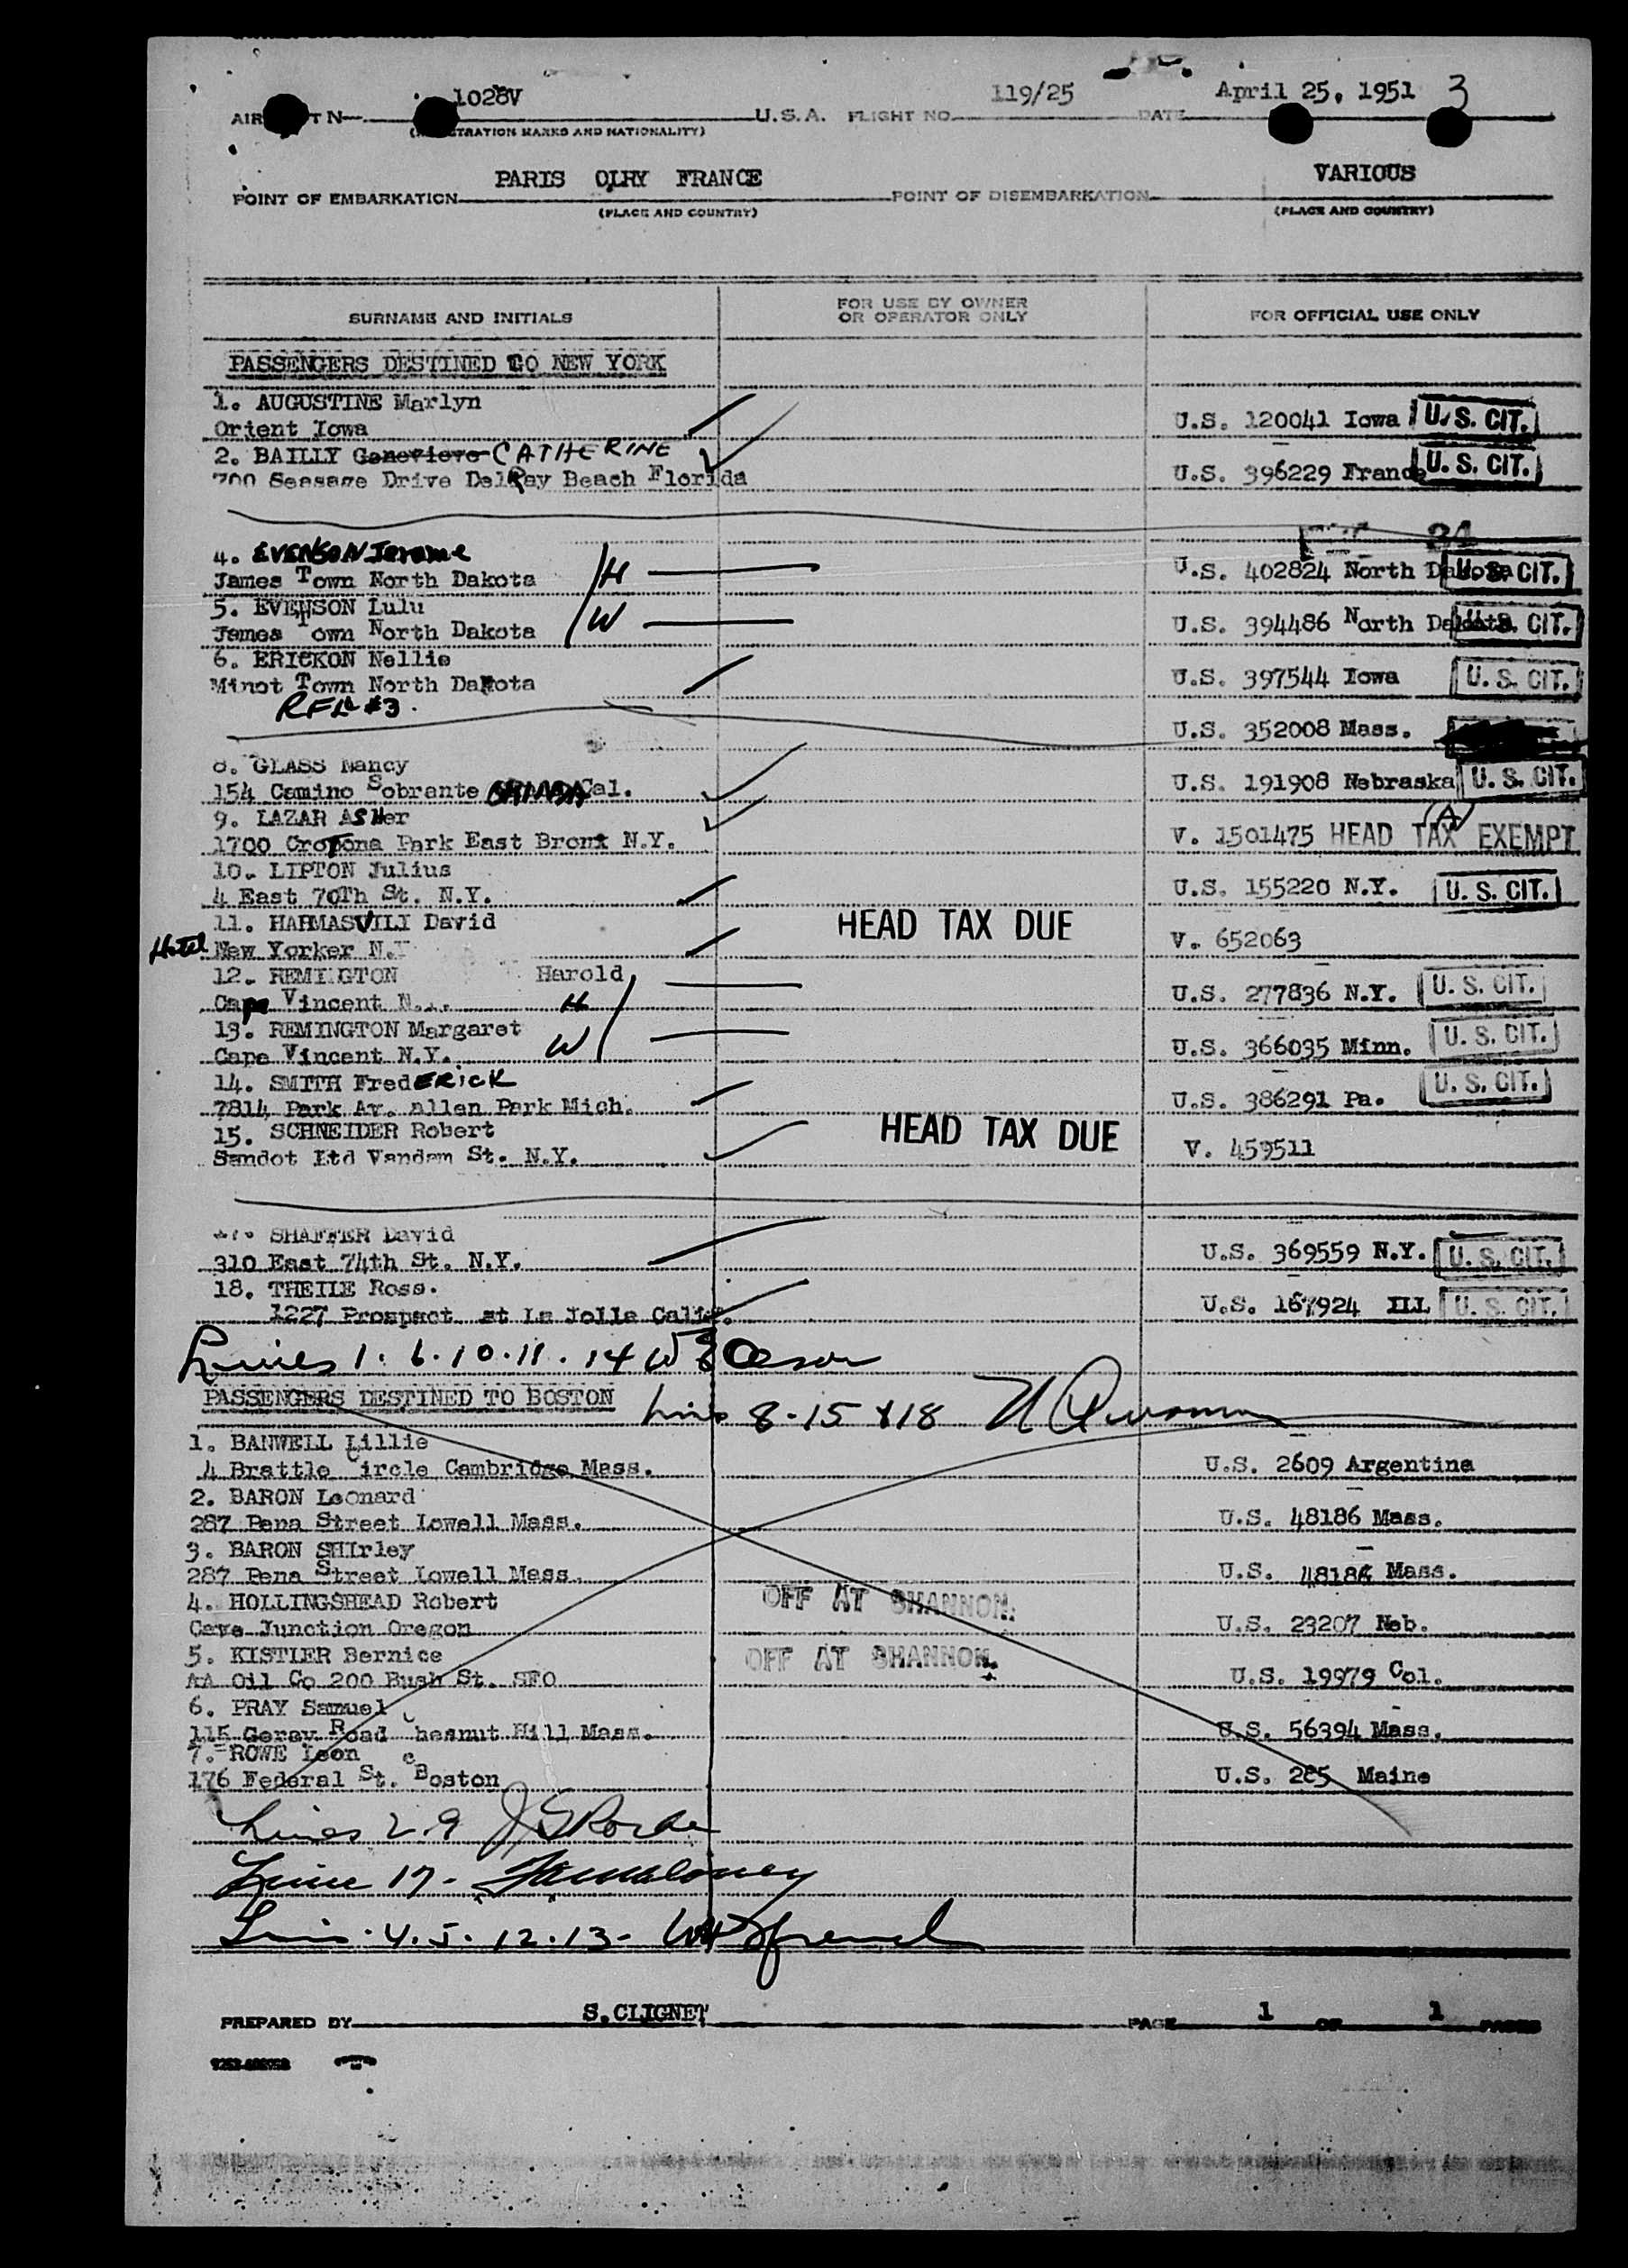 1028V 119/25 April 25, 1951 3
U.S.A. FLIGHT NO. DATE
MARKS AND NATIONALITY)
PARIS OLRY FRANCE VARIOUS
POINT OF EMBARKATION POINT OF DISEMBARKATION
(PLACE AND COUNTRY) (PLACE AND COUNTRY)
SURNAME AND INITIALS FOR USE BY OWNER OR OPERATOR ONLY FOR OFFICIAL USE ONLY
PASSENGERS DESTINED TO NEW YORK
1. AUGUSTINE Marlyn
Orient Iowa U.S. 120041 Iowa U.S. CIT.
2. BAILLY Genevieve CATHERINE
700 Seasage Drive DelRay Beach Florida U.S. 396229 France U.S. CIT.
4. EVENSON Jerome
James Town North Dakota H U.S. 402824 North Dakota U.S. CIT.
5. EVENSON Lulu
James Town North Dakota W U.S. 394486 North Dakota U.S. CIT.
6. ERICKON Nellie
Minot Town North Dakota U.S. 397544 Iowa U.S. CIT.
#3.
U.S. 352008 Mass.
8. GLASS Nancy
154 Camino Sobrante ORINDA Cal. U.S. 191908 Nebraska U.S. CIT.
9. LAZAR ASHer
1700 Crotona Park East Bronx N.Y. V. 1501475 HEAD TAX EXEMPT (A)
10. LIPTON Julius
4 East 70Th St. N.Y. U.S. 155220 N.Y. U.S. CIT.
11. HARMASVILI David
Hotel New Yorker N.Y HEAD TAX DUE V. 652063
12. REMINGTON Harold
Cape Vincent N.Y. H U.S. 277836 N.Y. U.S. CIT.
13. REMINGTON Margaret
Cape Vincent N.Y. W U.S. 366035 Minn. U.S. CIT.
14. SMITH FredERICK
7814 Park Av. Allen Park Mich. U.S. 386291 Pa. U.S. CIT.
15. SCHNEIDER Robert
Sandot Ltd Vandam St. N.Y. HEAD TAX DUE V. 459511
SHAFFER David
310 East 74th St. N.Y. U.S. 369559 N.Y. U.S. CIT.
18. THEILE Ross.
1227 Prospect at La Jolla Calif. U.S. 167924 ILL U.S. CIT.
Lines 1. 6. 10. 11. 14
PASSENGERS DESTINED TO BOSTON Lines 8-15 & 18
1. BANWELL Lillie
4 Brattle Circle Cambridge Mass. U.S. 2609 Argentina
2. BARON Leonard
287 Pena Street Lowell Mass. U.S. 48186 Mass.
3. BARON SHIrley
287 Pena Street Lowell Mass. U.S. 48186 Mass.
4. HOLLINGSHEAD Robert
Cave Junction Oregon OFF AT SHANNON. U.S. 23207 Neb.
5. KISTLER Bernice
AA Oil Co 200 Bush St. SFO OFF AT SHANNON. U.S. 19979 Col.
6. PRAY Samuel
115 Geray Road Chesnut Hill Mass. U.S. 56394 Mass.
7. ROWE Leon
176 Federal St. Boston U.S. 285 Maine
Lines 2.9
Line 17-
Lines 4.5. 12.13-
PREPARED BY S. CLIGNET PAGE 1 OF 1 PAGES